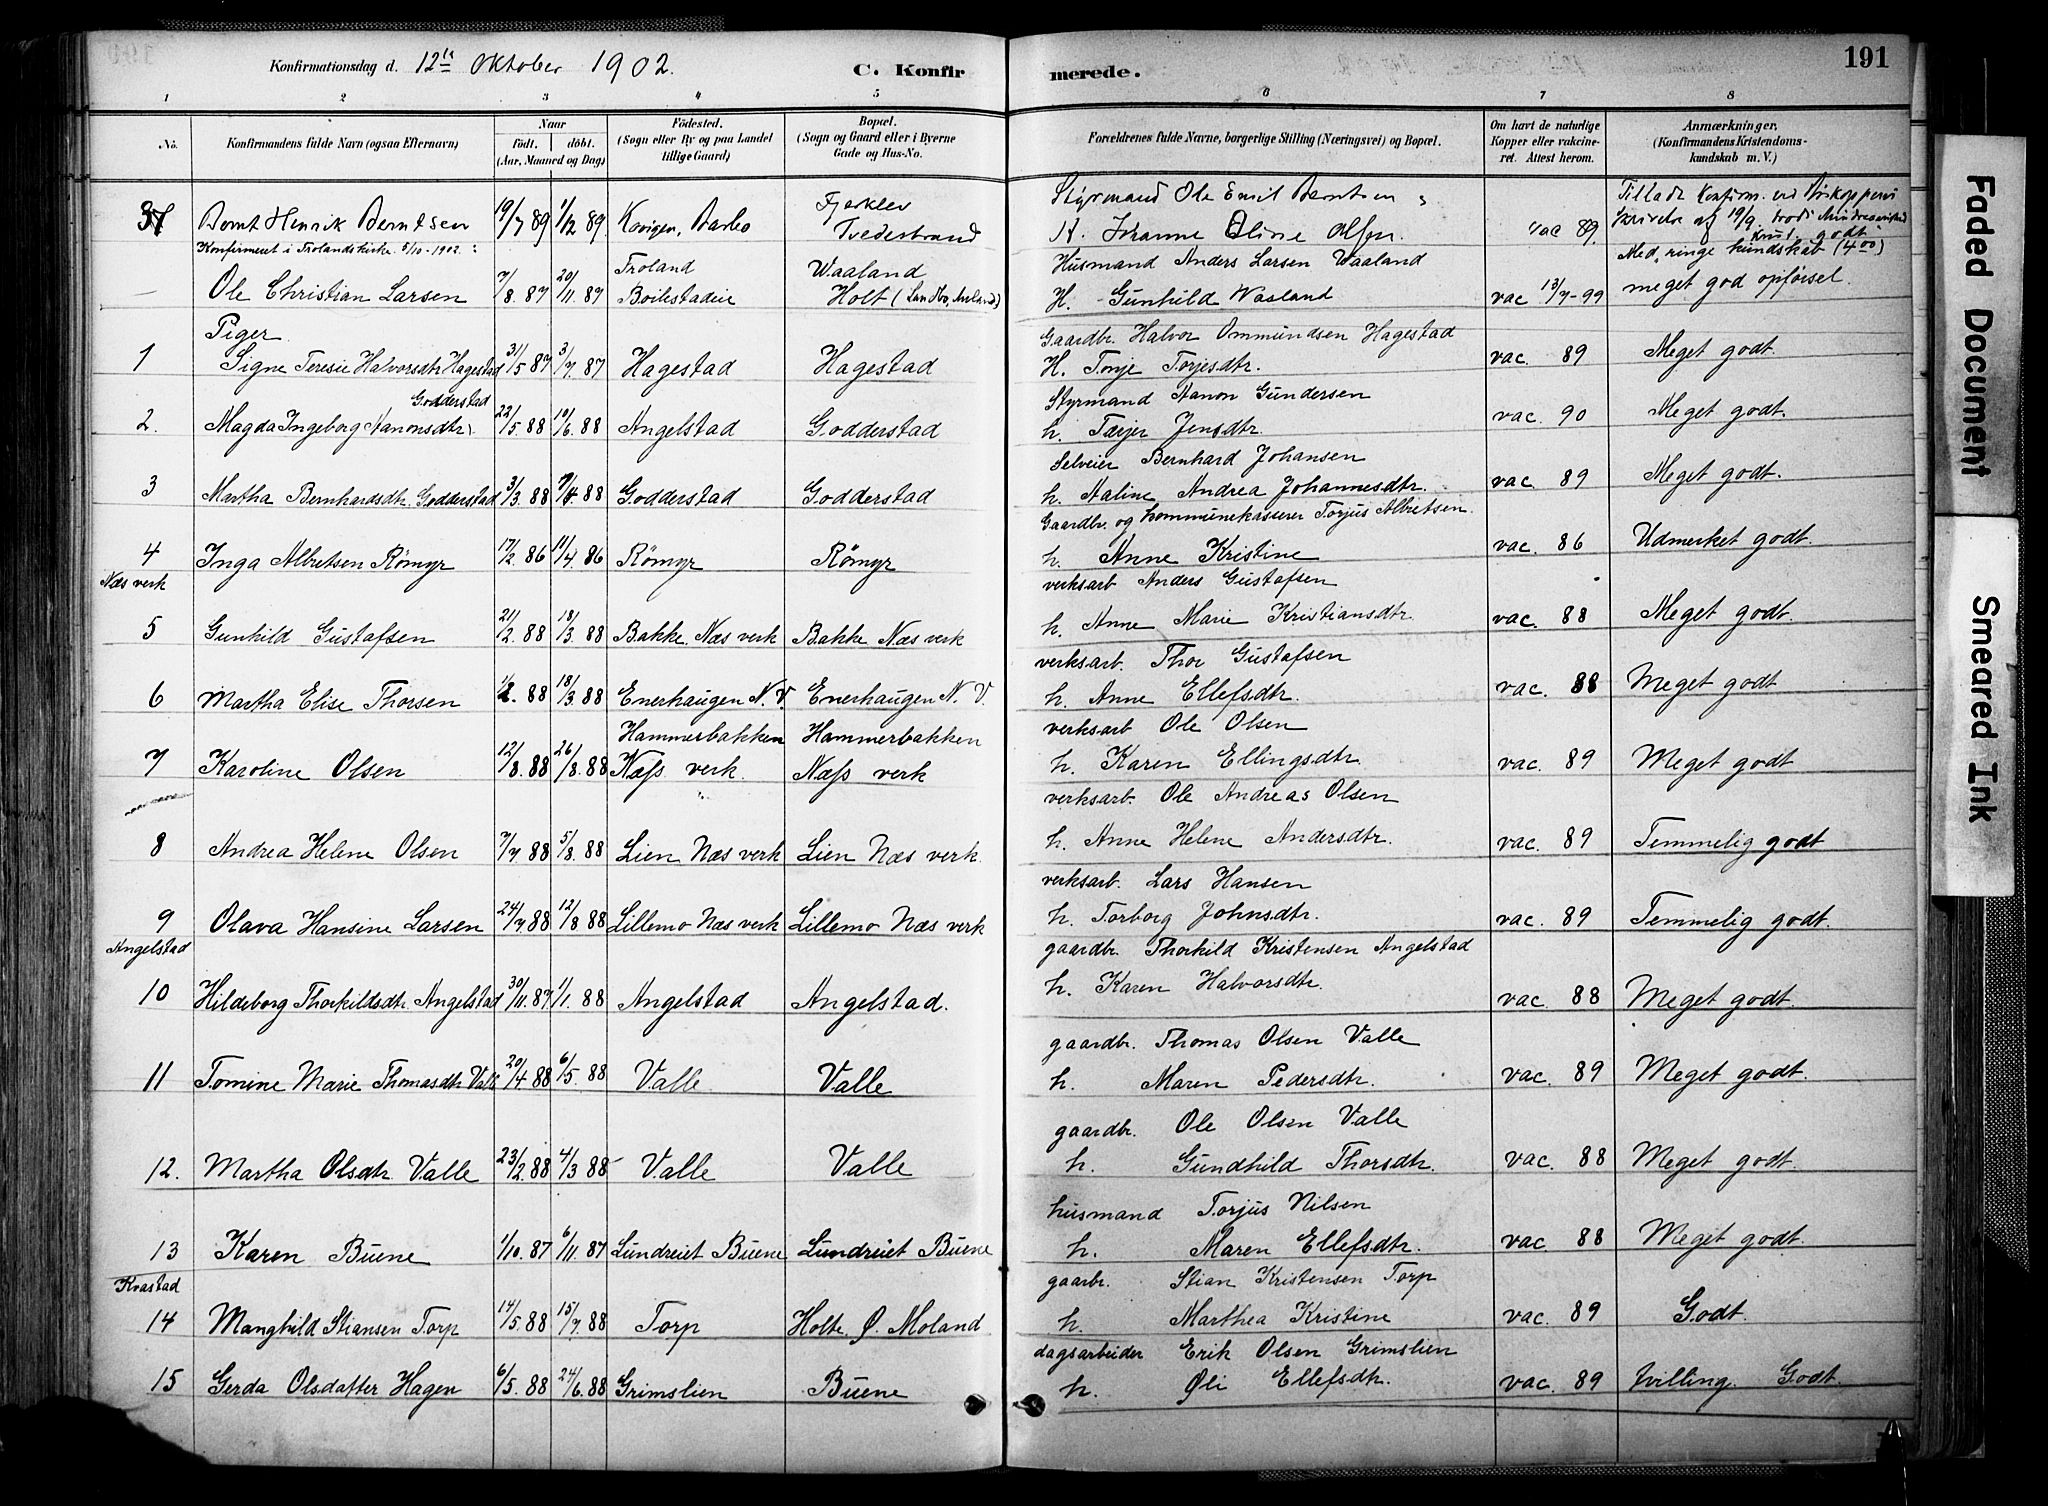 Konfirmationsdag d. 12te Oktober 1902.
C. Konfirmerede.
191
1 2 3 4 5 6 7 8
No.
Konfirmandens fulde Navn (ogsaa Efternavn)
Naar
født. døbt.
(Aar, Maaned og Dag)
Fødested.
(Sogn eller By og paa Landet tillige Gaard)
Bopæl.
(Sogn og Gaard eller i Byerne Gade og Hus-No.
Forældrenes fulde Navne, borgerlige Stilling (Næringsvei) og Bopæl.
Om havt de naturlige Kopper eller vakcineret. Attest herom.
Anmærkninger,
(Konfirmandens Kristendomskundskab m. V.)
37 Bernt Henrik Berntsen 19/7 89 1/12 89 Barbo Fjerklev Tvedestrand
Styrmand Ole Emil Berntsen
H. Johanne Oline Olsen. vac 89.
Konfirmeret i Trolands kirke 5/10-1902.
Ole Christian Larsen 7/8. 87 20/11. 87 Froland Boilestadeie Waaland Holt
Husmand Anders Larsen Waaland
H. Gunhild Waaland vac 13/7-99
Med ringe kundskab (4.00) meget god opførsel.
Piger
1 Signe Teresie Halvorsdtr Hagestad 31/5 87 3/7. 87 Hagestad Hagestad
Gaardbr. Halvor Ommundsen Hagestad
H. Tonje Torjesdtr. vac. 89 Meget godt.
2. Magda Ingeborg Aanonsdtr. Godderstad 22/5. 88 10/6. 88 Angelstad Godderstad
Styrmand Aanon Gundersen
h. Tarjer Jensdtr. vac. 90 Meget godt.
3 Martha Bernhardsdtr. Godderstad 3/3. 88 88 Godderstad Godderstad
Selveier Bernhard Johansen
h. Aaline Andrea Johannesdtr. vac. 89 Meget godt.
4 Inga Albretsen Römyr 17/2. 86 11/4. 86 Römyr Römyr
Gaardbr. og kommunekasserer Torjus Albretsen.
h. Anne Kristine vac. 86 Udmerket godt.
Næs verk
5 Gunhild Gustafsen 21/2. 88 18/3. 88 Bakke. Næs verk Bakke Næs verk
verksarb Anders Gustafsen
h. Anne Marie Kristiansdtr. vac. 88 Meget godt.
6 Martha Elise Thorsen 1/2. 88 18/3. 88 Enerhaugen N. V. Enerhaugen N. V.
verksarb. Thor Gustafsen
h. Anne Ellefsdtr. vac. 88 Meget godt
7 Karoline Olsen 12/8. 88 26/8. 88 Hammerbakken Næss verk. Hammerbakken Næss verk
verksarb Ole Olsen
h. Karen Ellingsdtr. vac. 89 Meget godt
8 Andrea Helene Olsen 7/7. 88 5/8. 88 Lien Næs verk Lien Næs verk.
verksarb. Ole Andreas Olsen
h. Anne Helene Andersdtr. vac. 89 Temmelig godt
9 Olava Hansine Larsen 24/7. 88 12/8 88 Lillemo Næs verk Lillemo Næs verk
verksarb. Lars Hansen
h. Torborg Johnsdtr. vac. 89 Temmelig godt.
Angelstad
10 Hildeborg Thorkildsdtr. Angelstad 30/11. 87 1/1. 88 Angelstad Angelstad.
gaardbr. Thorkild Kristensen Angelstad
h. Karen Halvorsdtr. vac. 88 Meget godt.
11 Tomine Marie Thomasdtr Valle 20/4. 88 6/5. 88 Valle Valle
gaardbr. Thomas Olsen Valle
h. Maren Pedersdtr. vac. 89 Meget godt.
12. Martha Olsdtr. Valle 23/2. 88 4/3 88 Valle Valle
gaardbr. Ole Olsen Valle
h. Gundhild Thorsdtr. vac. 88 Meget godt.
13 Karen Buene 1/10. 87 6/11. 87 Lundreiet Buene Lundreiet Buene
husmand Torjus Nilsen
h. Maren Ellefsdtr. vac. 88 Meget godt.
Kvastad
14 Manghild Stiansen Torp 14/5. 88 15/7. 88 Torp Holte. Ø. Moland
gaarbr. Stian Kristensen Torp
h. Marthea Kristine vac. 89 Godt.
15 Gerda Olsdatter Hagen 6/5. 88 24/6. 88 Grimslien Buene
dagsarbeider Erik Olsen Grimslien
h. Øli Ellefsdtr. vac. 89 tvilling. Godt.
Faded Document
Smeared Ink